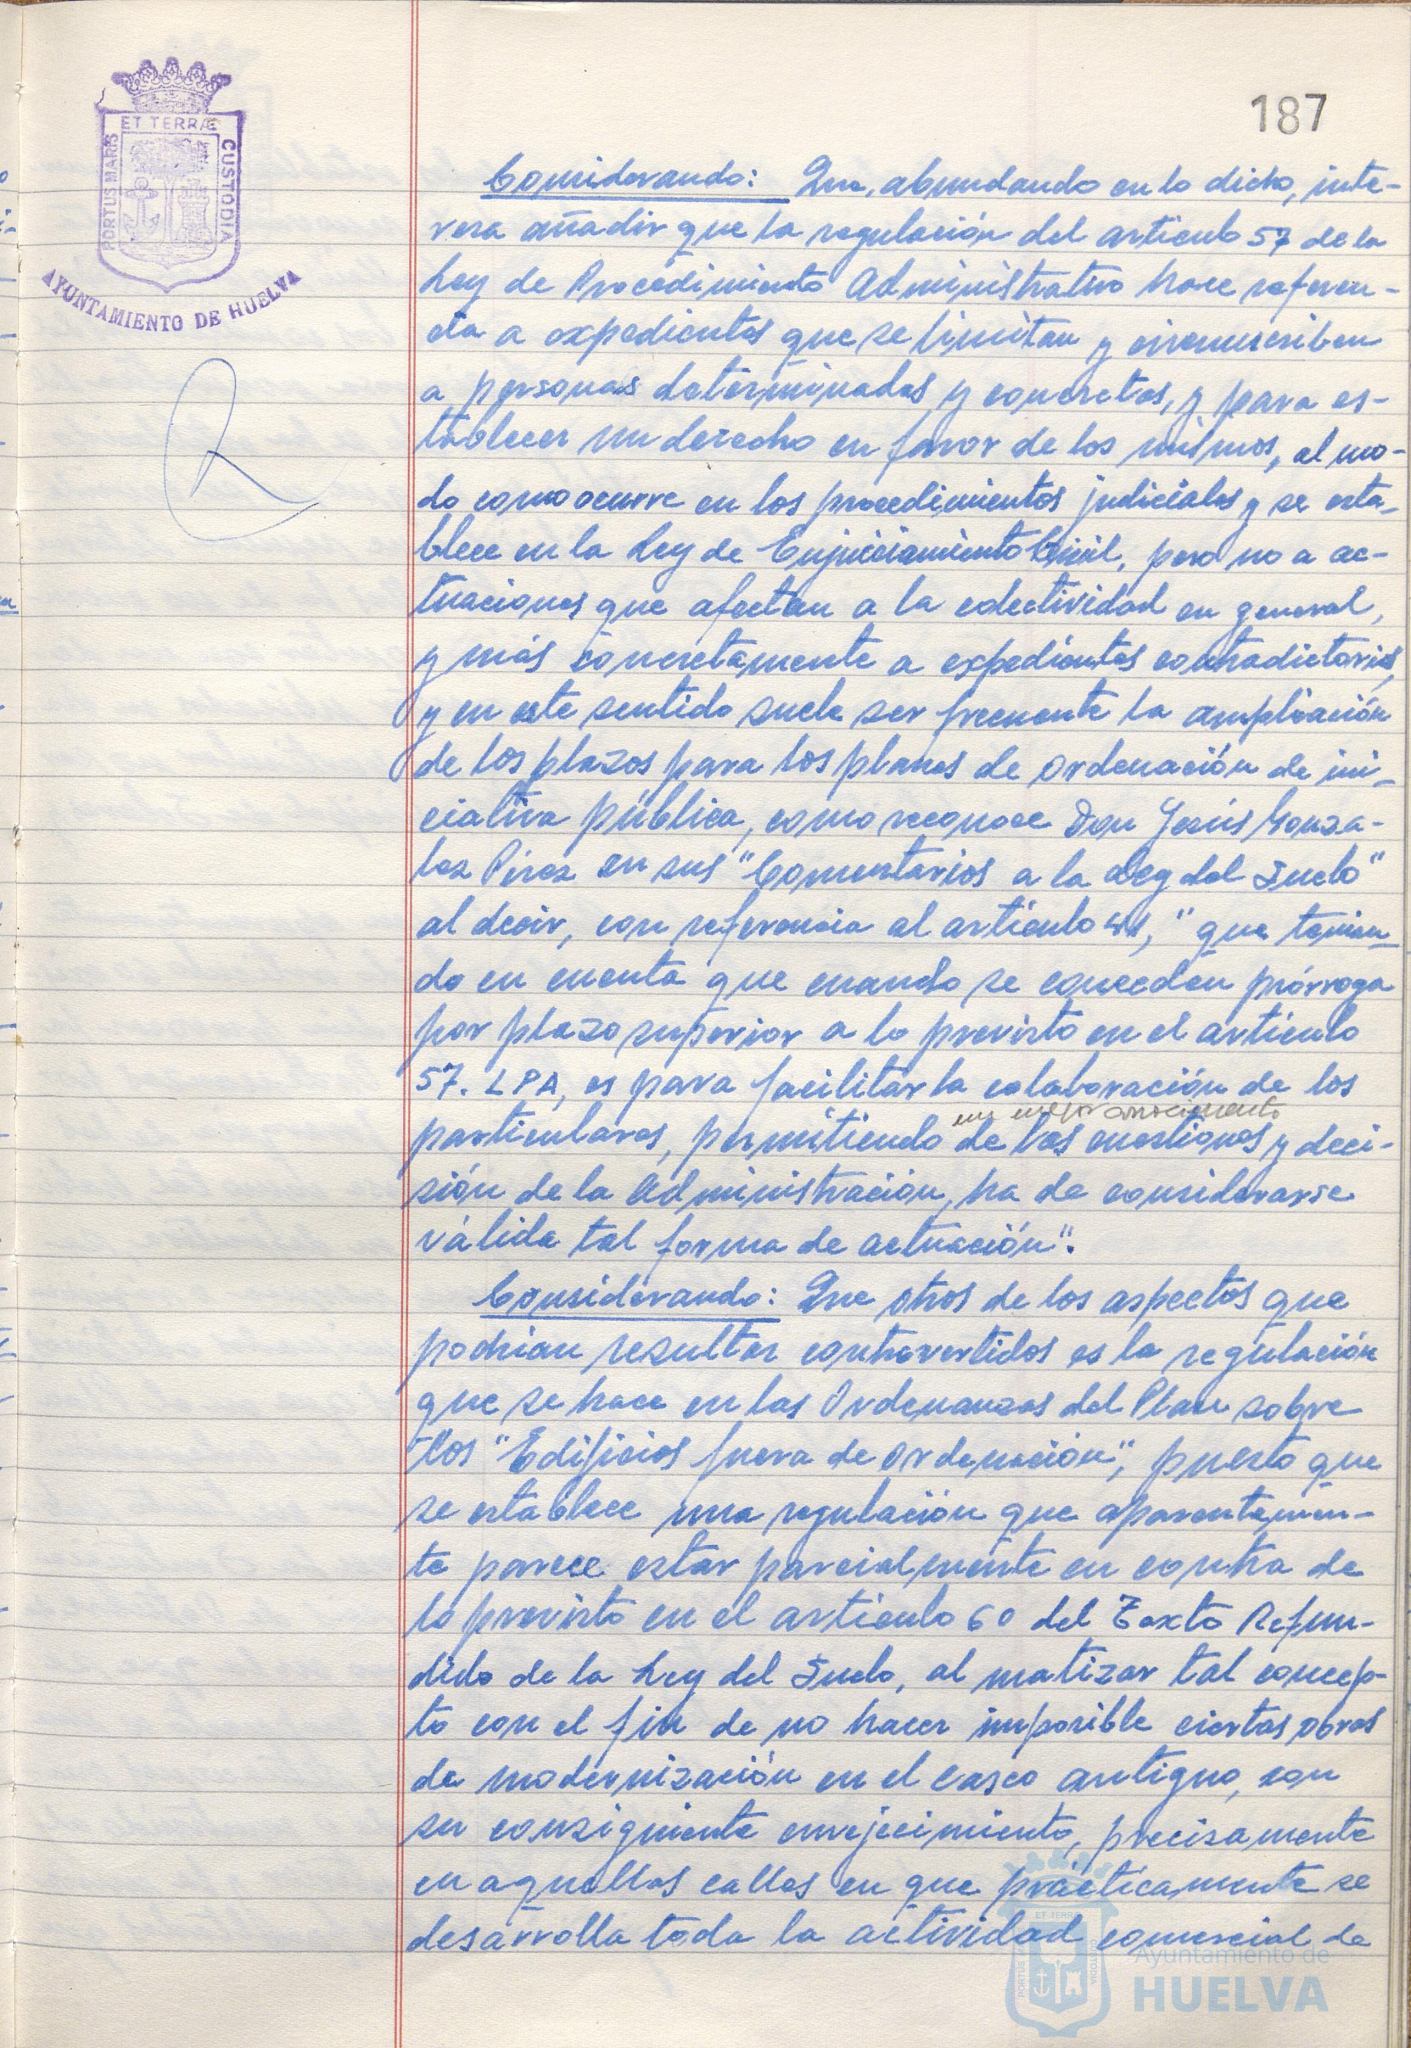 187
PORTUS MARIS ET TERRÆ CUSTODIA
AYUNTAMIENTO DE HUELVA
Considerando: Que, abundando en lo dicho, inte-
resa añadir que la regulación del artículo 57 de la
Ley de Procedimiento Administrativo hace referen-
cia a expedientes que se limitan y circunscriben
a personas determinadas y concretas, y para es-
tablecer un derecho en favor de los mismos, al mo-
do como ocurre en los procedimientos judiciales y se esta-
blece en la Ley de Enjuiciamiento Civil, pero no a ac-
tuaciones que afectan a la colectividad en general,
y más concretamente a expedientes contradictorios,
y en este sentido suele ser frecuente la ampliación
de los plazos para los planes de ordenación de ini-
ciativa pública, como reconoce Don Jesús Gonza-
lez Pérez en sus "Comentarios a la Ley del Suelo"
al decir, con referencia al artículo 41, "que tenien-
do en cuenta que cuando se conceden prórroga
por plazo superior a lo previsto en el artículo
57. LPA, es para facilitar la colaboración de los
un mejor conocimiento
particulares, permitiendo de las cuestiones y deci-
sión de la Administración, ha de considerarse
válida tal forma de actuación".
Considerando: Que otros de los aspectos que
podrían resultar controvertidos es la regulación
que se hace en las Ordenanzas del Plan sobre
los "Edificios fuera de ordenación", puesto que
se establece una regulación que aparentemen-
te parece estar parcialmente en contra de
lo previsto en el artículo 60 del Texto Refun-
dido de la Ley del Suelo, al matizar tal concep-
to con el fin de no hacer imposible ciertas obras
de modernización en el casco antiguo, con
su consiguiente envejecimiento, precisamente
en aquellas calles en que prácticamente se
desarrolla toda la actividad comercial de
Ayuntamiento de
HUELVA